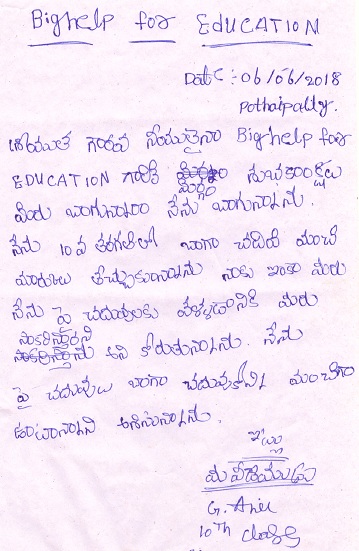 Bighelp for EDUCATION
Date : 06/06/2018
Pothaipally.
గౌరవ Bighelp for
EDUCATION గారికి శుభకాంక్షలు
మీరు బాగున్నారా నేను బాగున్నాను.
నేను 10వ తరగతిలో బాగా చదివి మంచి
మార్కులు తెచ్చుకున్నాను నాకు ఇంకా మీరు
నేను పై చదువులకు వెళ్ళడానికి మీరు
అని కోరుతున్నాను. నేను
పై చదువులు బాగా చదువుకోని మంచిగా
ఉంటానని ఆశిస్తున్నాను.
ఇట్లు
మీ విధేయుడు
G. Anil
10th class